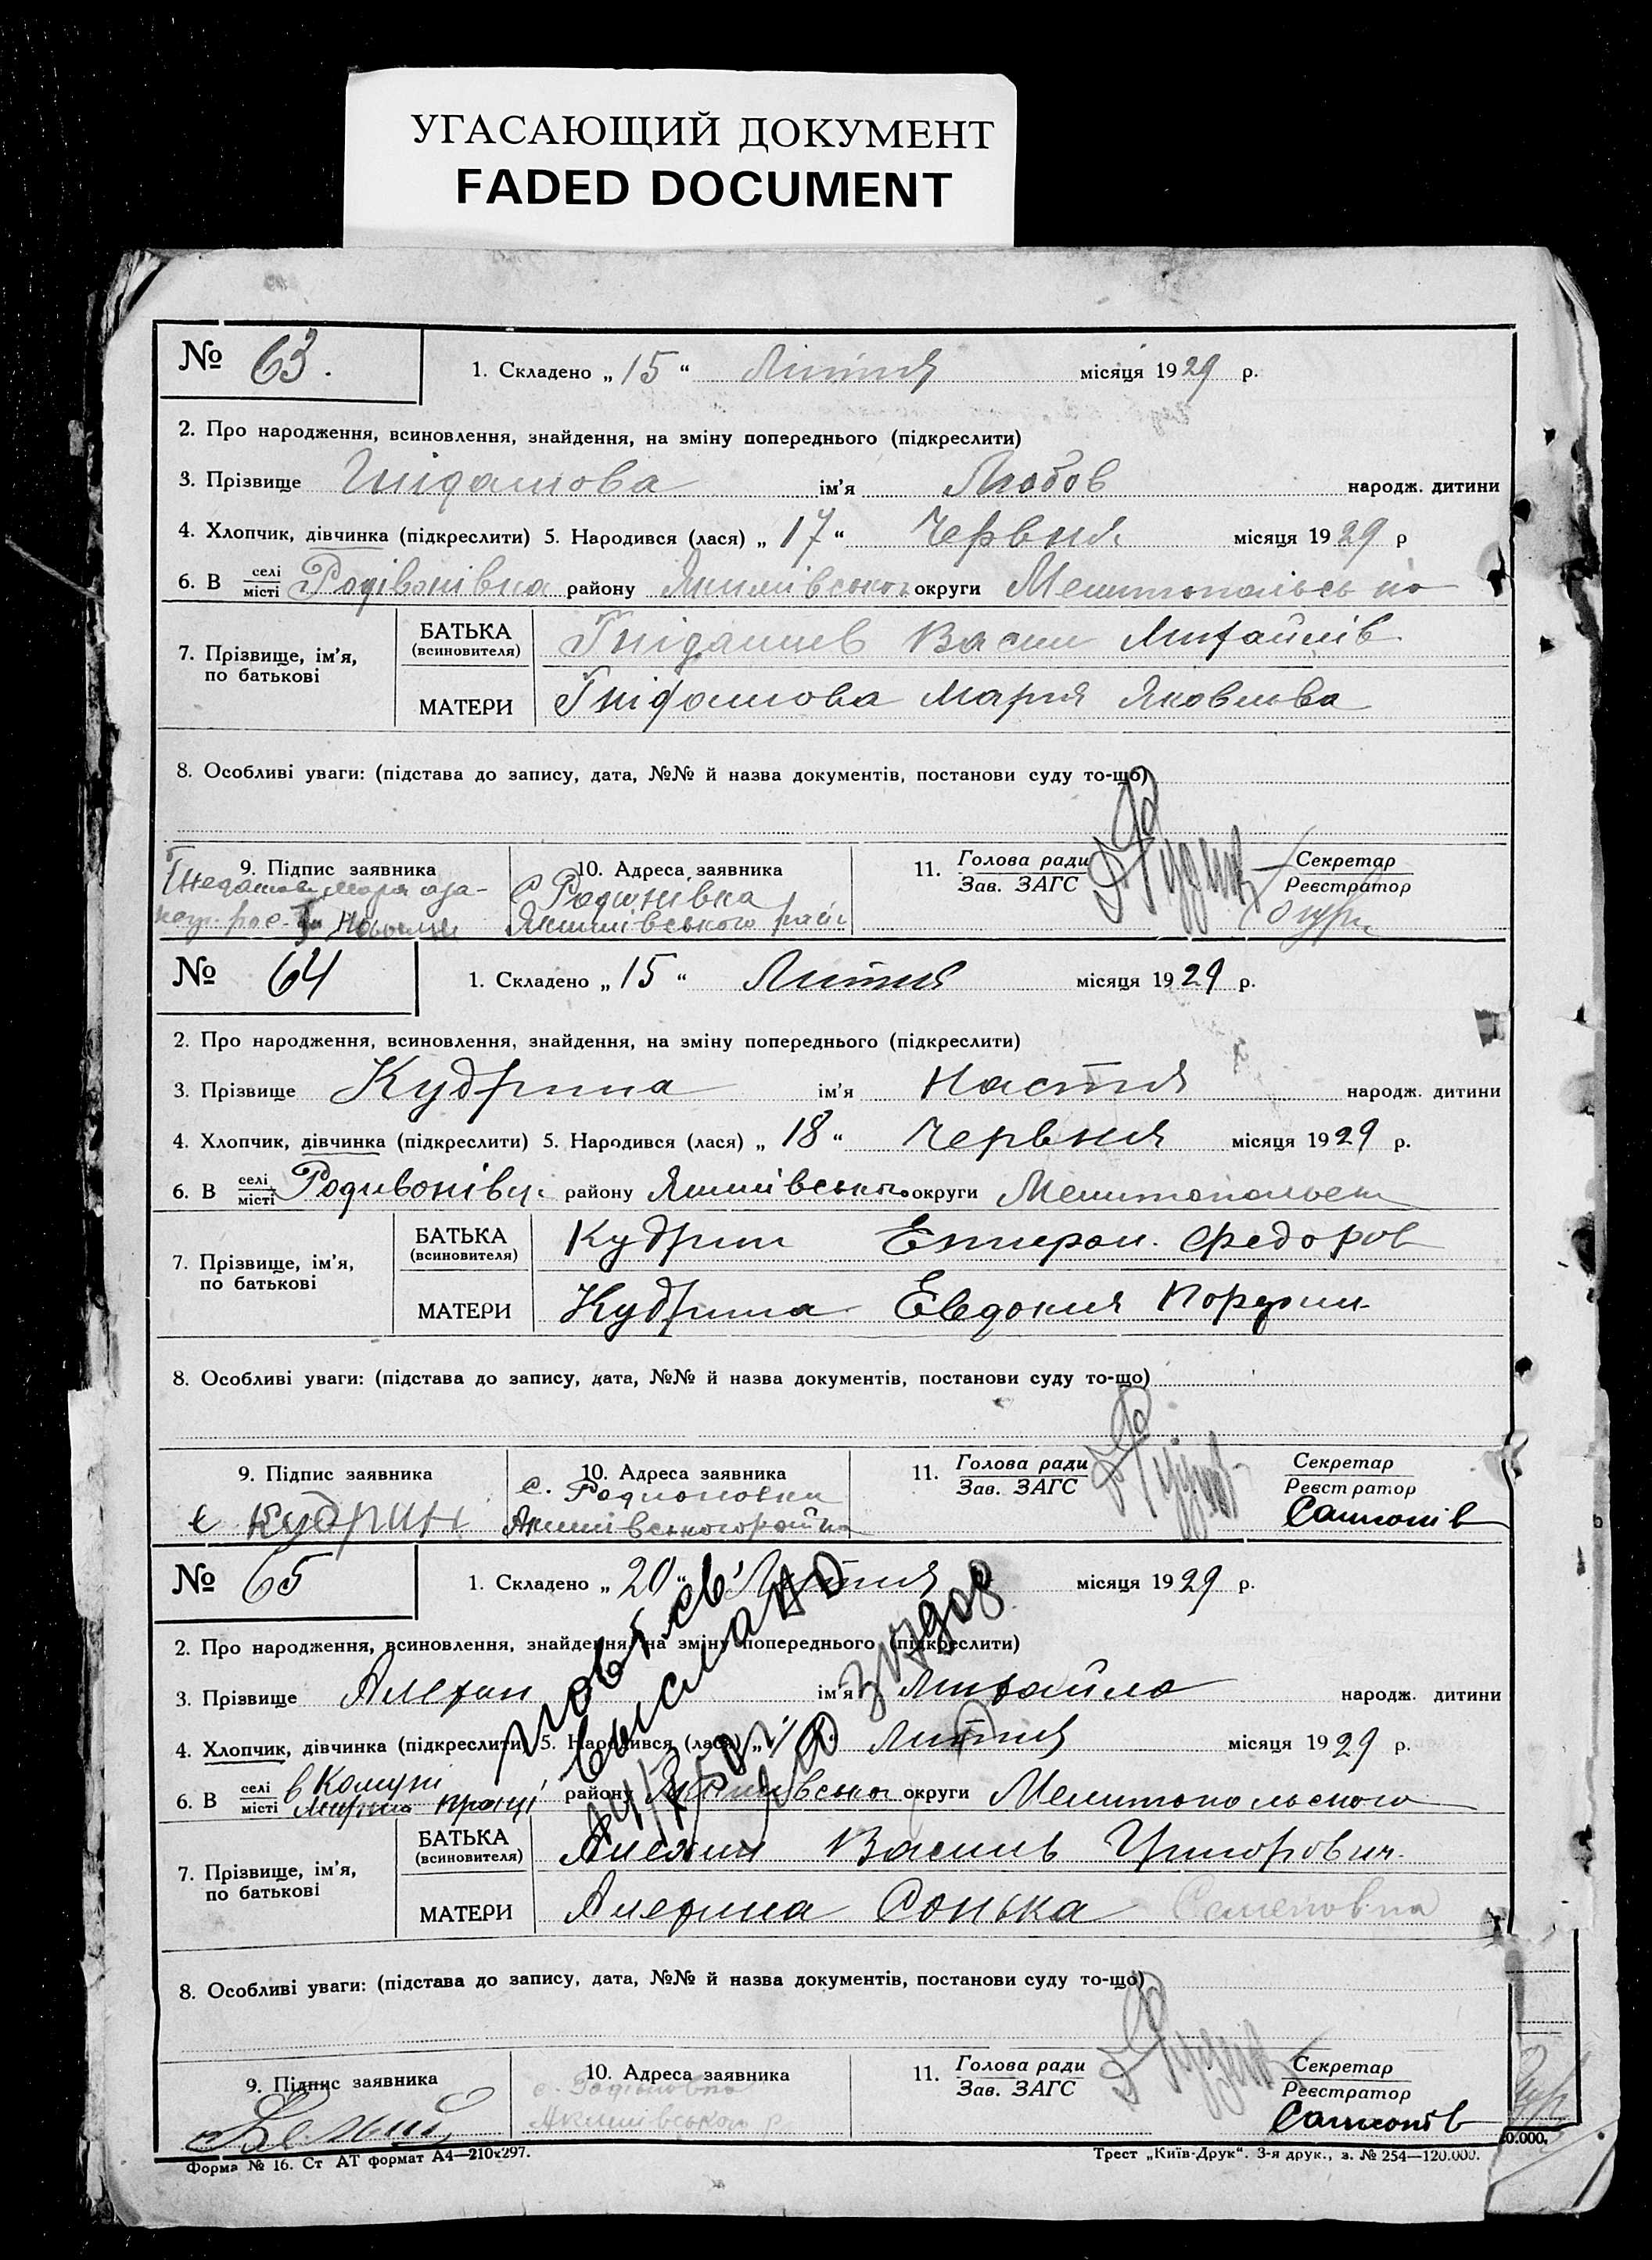 УГАСАЮЩИЙ ДОКУМЕНТ
FADED DOCUMENT
№ 63. 1. Складено „15“ Липня місяця 1929 р.
2. Про народження, всиновлення, знайдення, на зміну попереднього (підкреслити)
3. Прізвище Гнідашова ім'я Любов народж. дитини
4. Хлопчик, дівчинка (підкреслити) 5. Народився (лася) „17“ Червня місяця 1929 р
6. В селі місті Родівонівка району Якимівського округи Мелитопольсько
7. Прізвище, ім'я, по батькові
БАТЬКА (всиновителя) Гнідашев Васил Михайлів
МАТЕРИ Гнідашова Мария Яковлівва
8. Особливі уваги: (підстава до запису, дата, №№ й назва документів, постанови суду то-що)
9. Підпис заявника 10. Адреса заявника 11. Голова ради Зав. ЗАГС Секретар Реєстратор
с Родионівка
Якимівського рай
№ 64 1. Складено „15“ Липня місяця 1929 р.
2. Про народження, всиновлення, знайдення, на зміну попереднього (підкреслити)
3. Прізвище Кудрина ім'я Настя народж. дитини
4. Хлопчик, дівчинка (підкреслити) 5. Народився (лася) „18“ Червня місяця 1929 р.
6. В селі місті Родивонівці району Якимівського округи Мелитопольськ
7. Прізвище, ім'я, по батькові
БАТЬКА (всиновителя) Кудрин Федоров
МАТЕРИ Кудрина Евдокия Порфии
8. Особливі уваги: (підстава до запису, дата, №№ й назва документів, постанови суду то-що)
9. Підпис заявника 10. Адреса заявника 11. Голова ради Зав. ЗАГС Секретар Реєстратор
є Кудрин с. Родионовки
Якимівського району Самсонів
№ 65 1. Складено „20“ Липня місяця 1929 р.
2. Про народження, всиновлення, знайдення, на зміну попереднього (підкреслити)
3. Прізвище Алехин ім'я Михайло народж. дитини
4. Хлопчик, дівчинка (підкреслити) 5. Народився (лася) Липня місяця 1929 р.
6. В селі місті в Комуні Мирна праці району Якимівського округи Мелитопольського
повт. св
выслано
7. Прізвище, ім'я, по батькові
БАТЬКА (всиновителя) Алехин Василь Григорович
МАТЕРИ Алехина Сонька Семеновна
8. Особливі уваги: (підстава до запису, дата, №№ й назва документів, постанови суду то-що)
9. Підпис заявника 10. Адреса заявника 11. Голова ради Зав. ЗАГС Секретар Реєстратор
с. Родионовка
Якимівського р Самсонів
Форма № 16. Ст АТ формат А4—210х297. Трест „Київ-Друк“. 3-я друк., з. № 254—120.000.
0.000.